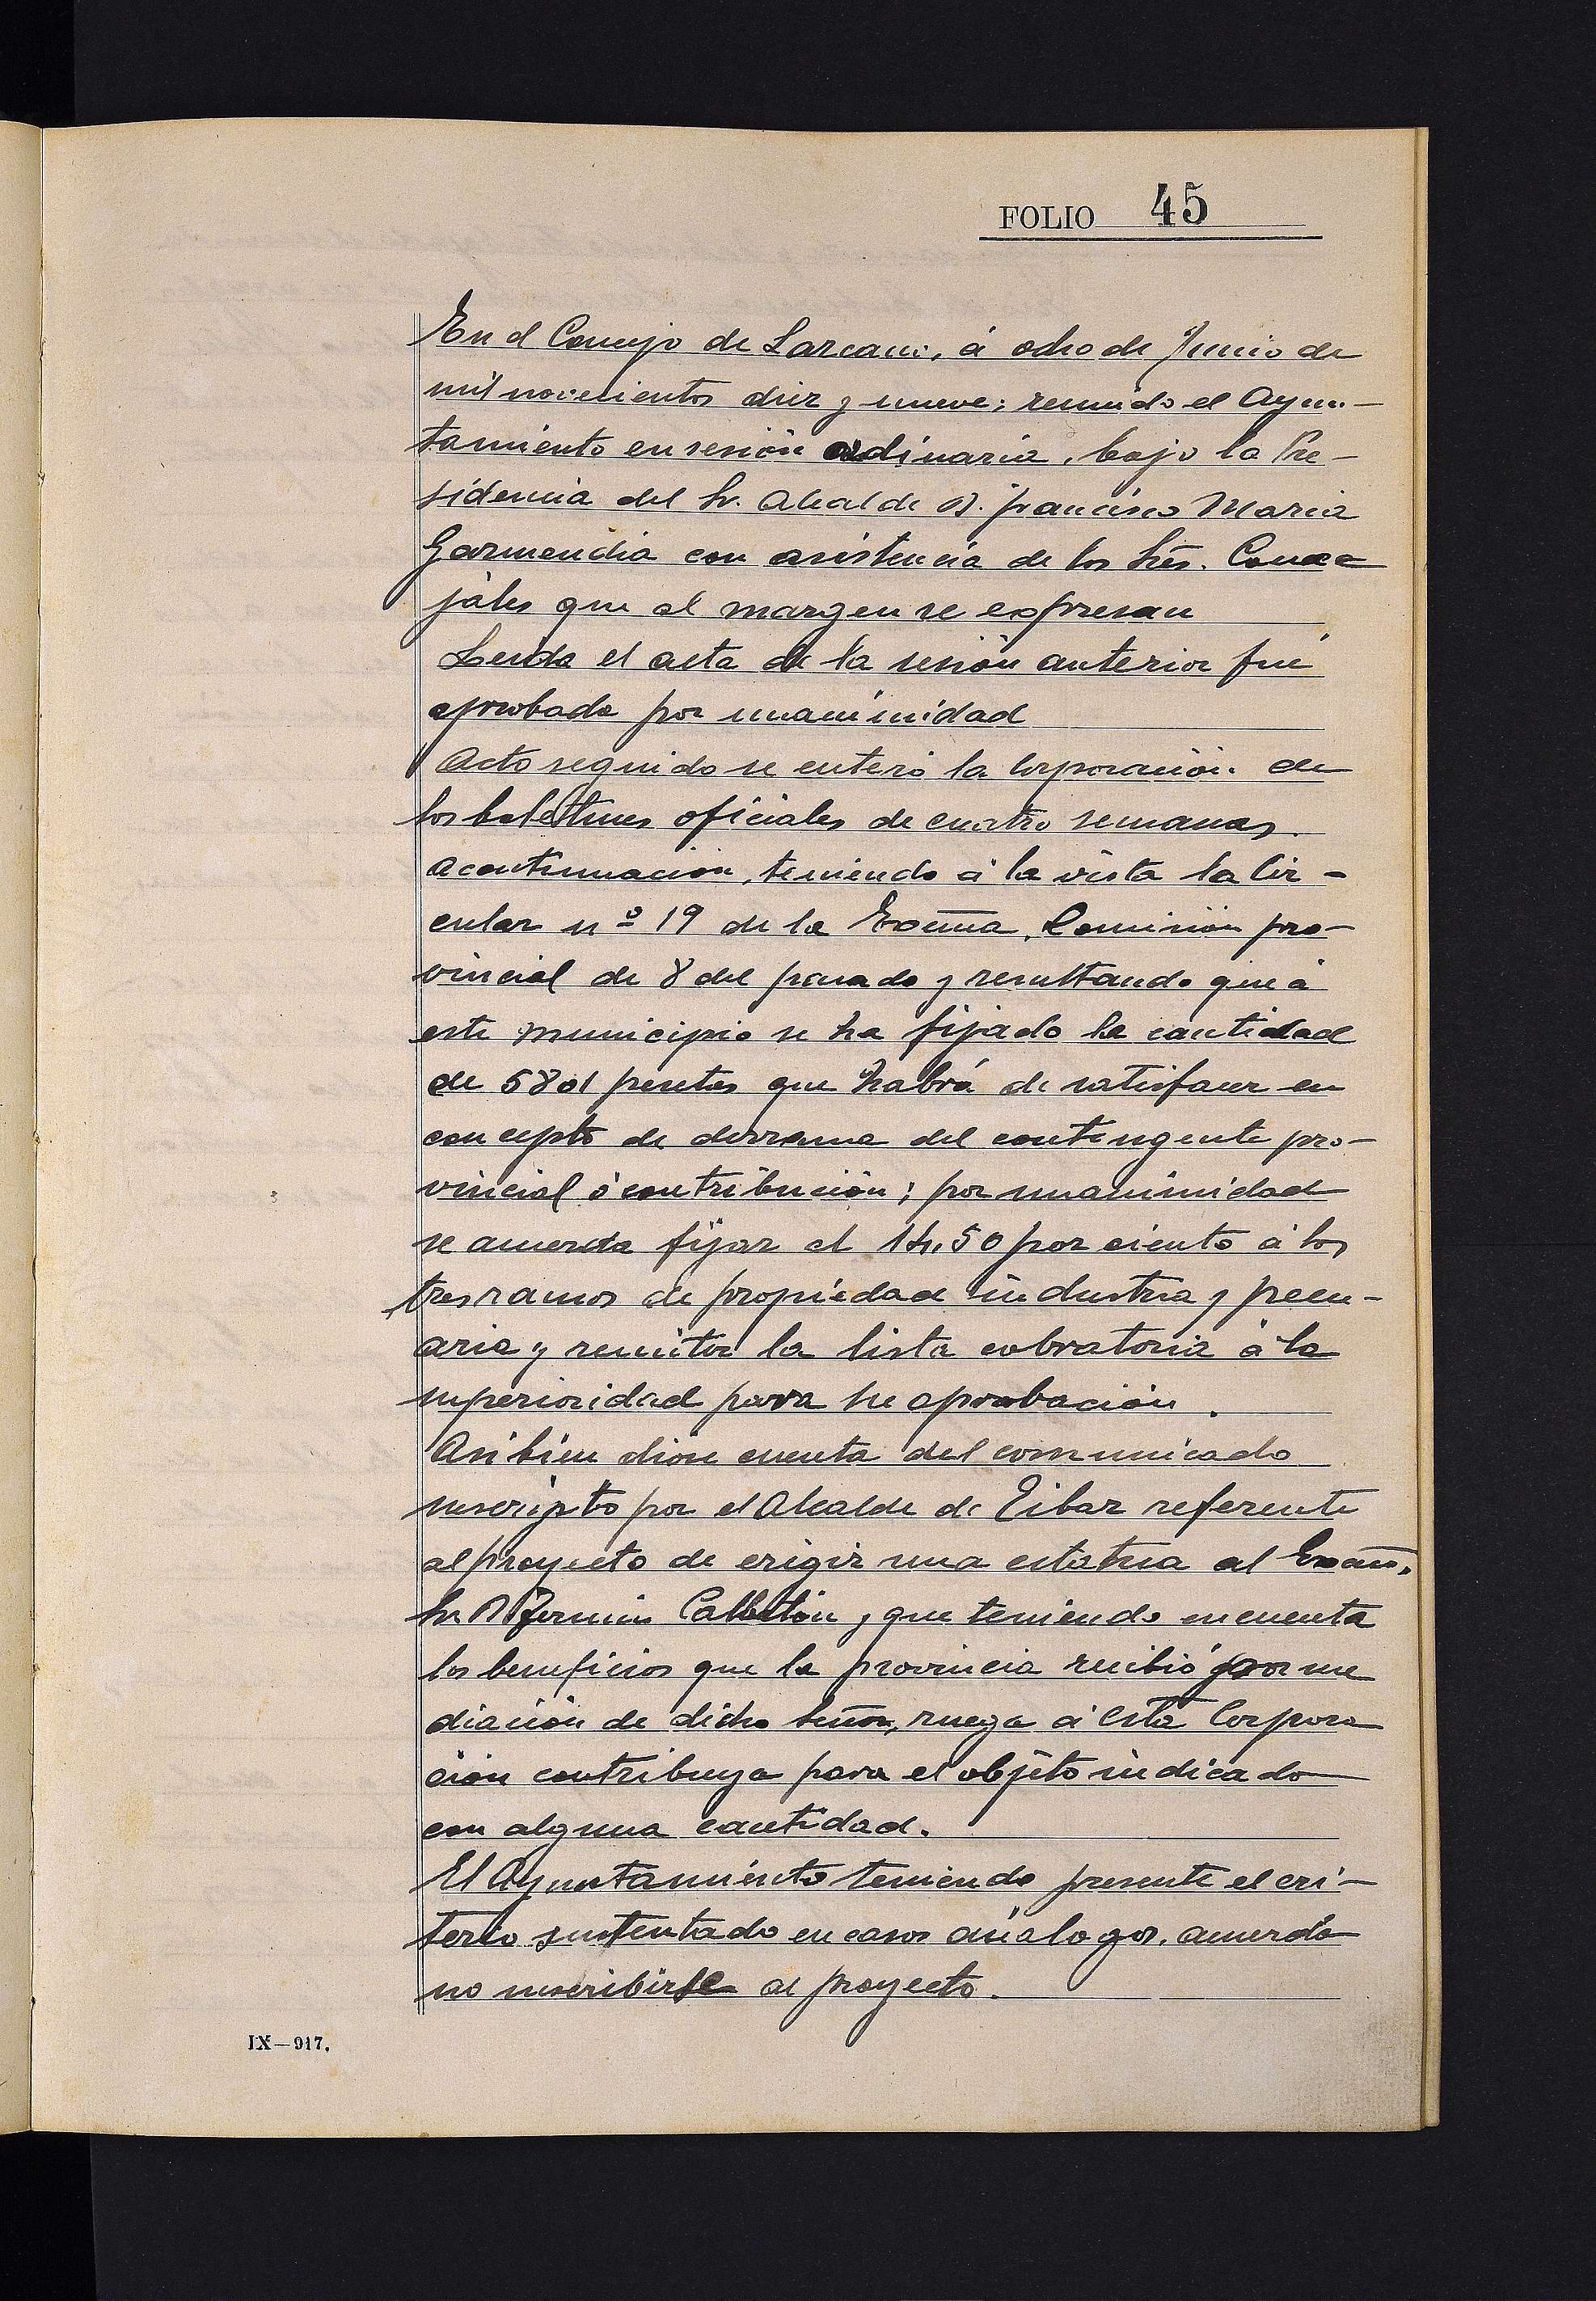 FOLIO 45
En el Concejo de Lazcano, á ocho de Junio de
mil novecientos diez y nueve; reunido el Ayun-
tamiento en sesión ordinaria, bajo la Pre-
sidencia del Sr. Alcalde D. Francisco Maria
Garmendia con asistencia de los Sres. Conce
jales que al margen se expresan
Leida el acta de la sesión anterior fué
aprobada por unanimidad
Acto seguido se enteró la Corporación de
los boletines oficiales de cuatro semanas.
Acontinuación, teniendo á la vista la Cir-
cular nº 19 de la Excma. Comisión pro-
vincial de 8 del pasado y resultando que á
este municipio se ha fijado la cantidad
de 5801 pesetas que habrá de satisfacer en
concepto de derrama del contingente pro-
vincial ó contribución; por unanimidad
se acuerda fijar el 14,50 por ciento á los
tres ramos de propiedad industria y pecu-
aria y remitir la lista cobratoria á la
superioridad para su aprobación.
Asi bien dióse cuenta del comunicado
suscripto por el Alcalde de Eibar referente
al proyecto de erigir una estatua al Excmo.
Sr. D Fermin Calbetón y que teniendo en cuenta
los beneficios que la provincia recibió por me
diación de dicho Señor, ruega á esta Corpora
ción contribuya para el objeto indicado
con alguna cantidad.
El Ayuntamiento teniendo presente el cri-
terio sustentado en casos análogos, acuerda
no suscribirse al proyecto.
IX—917.